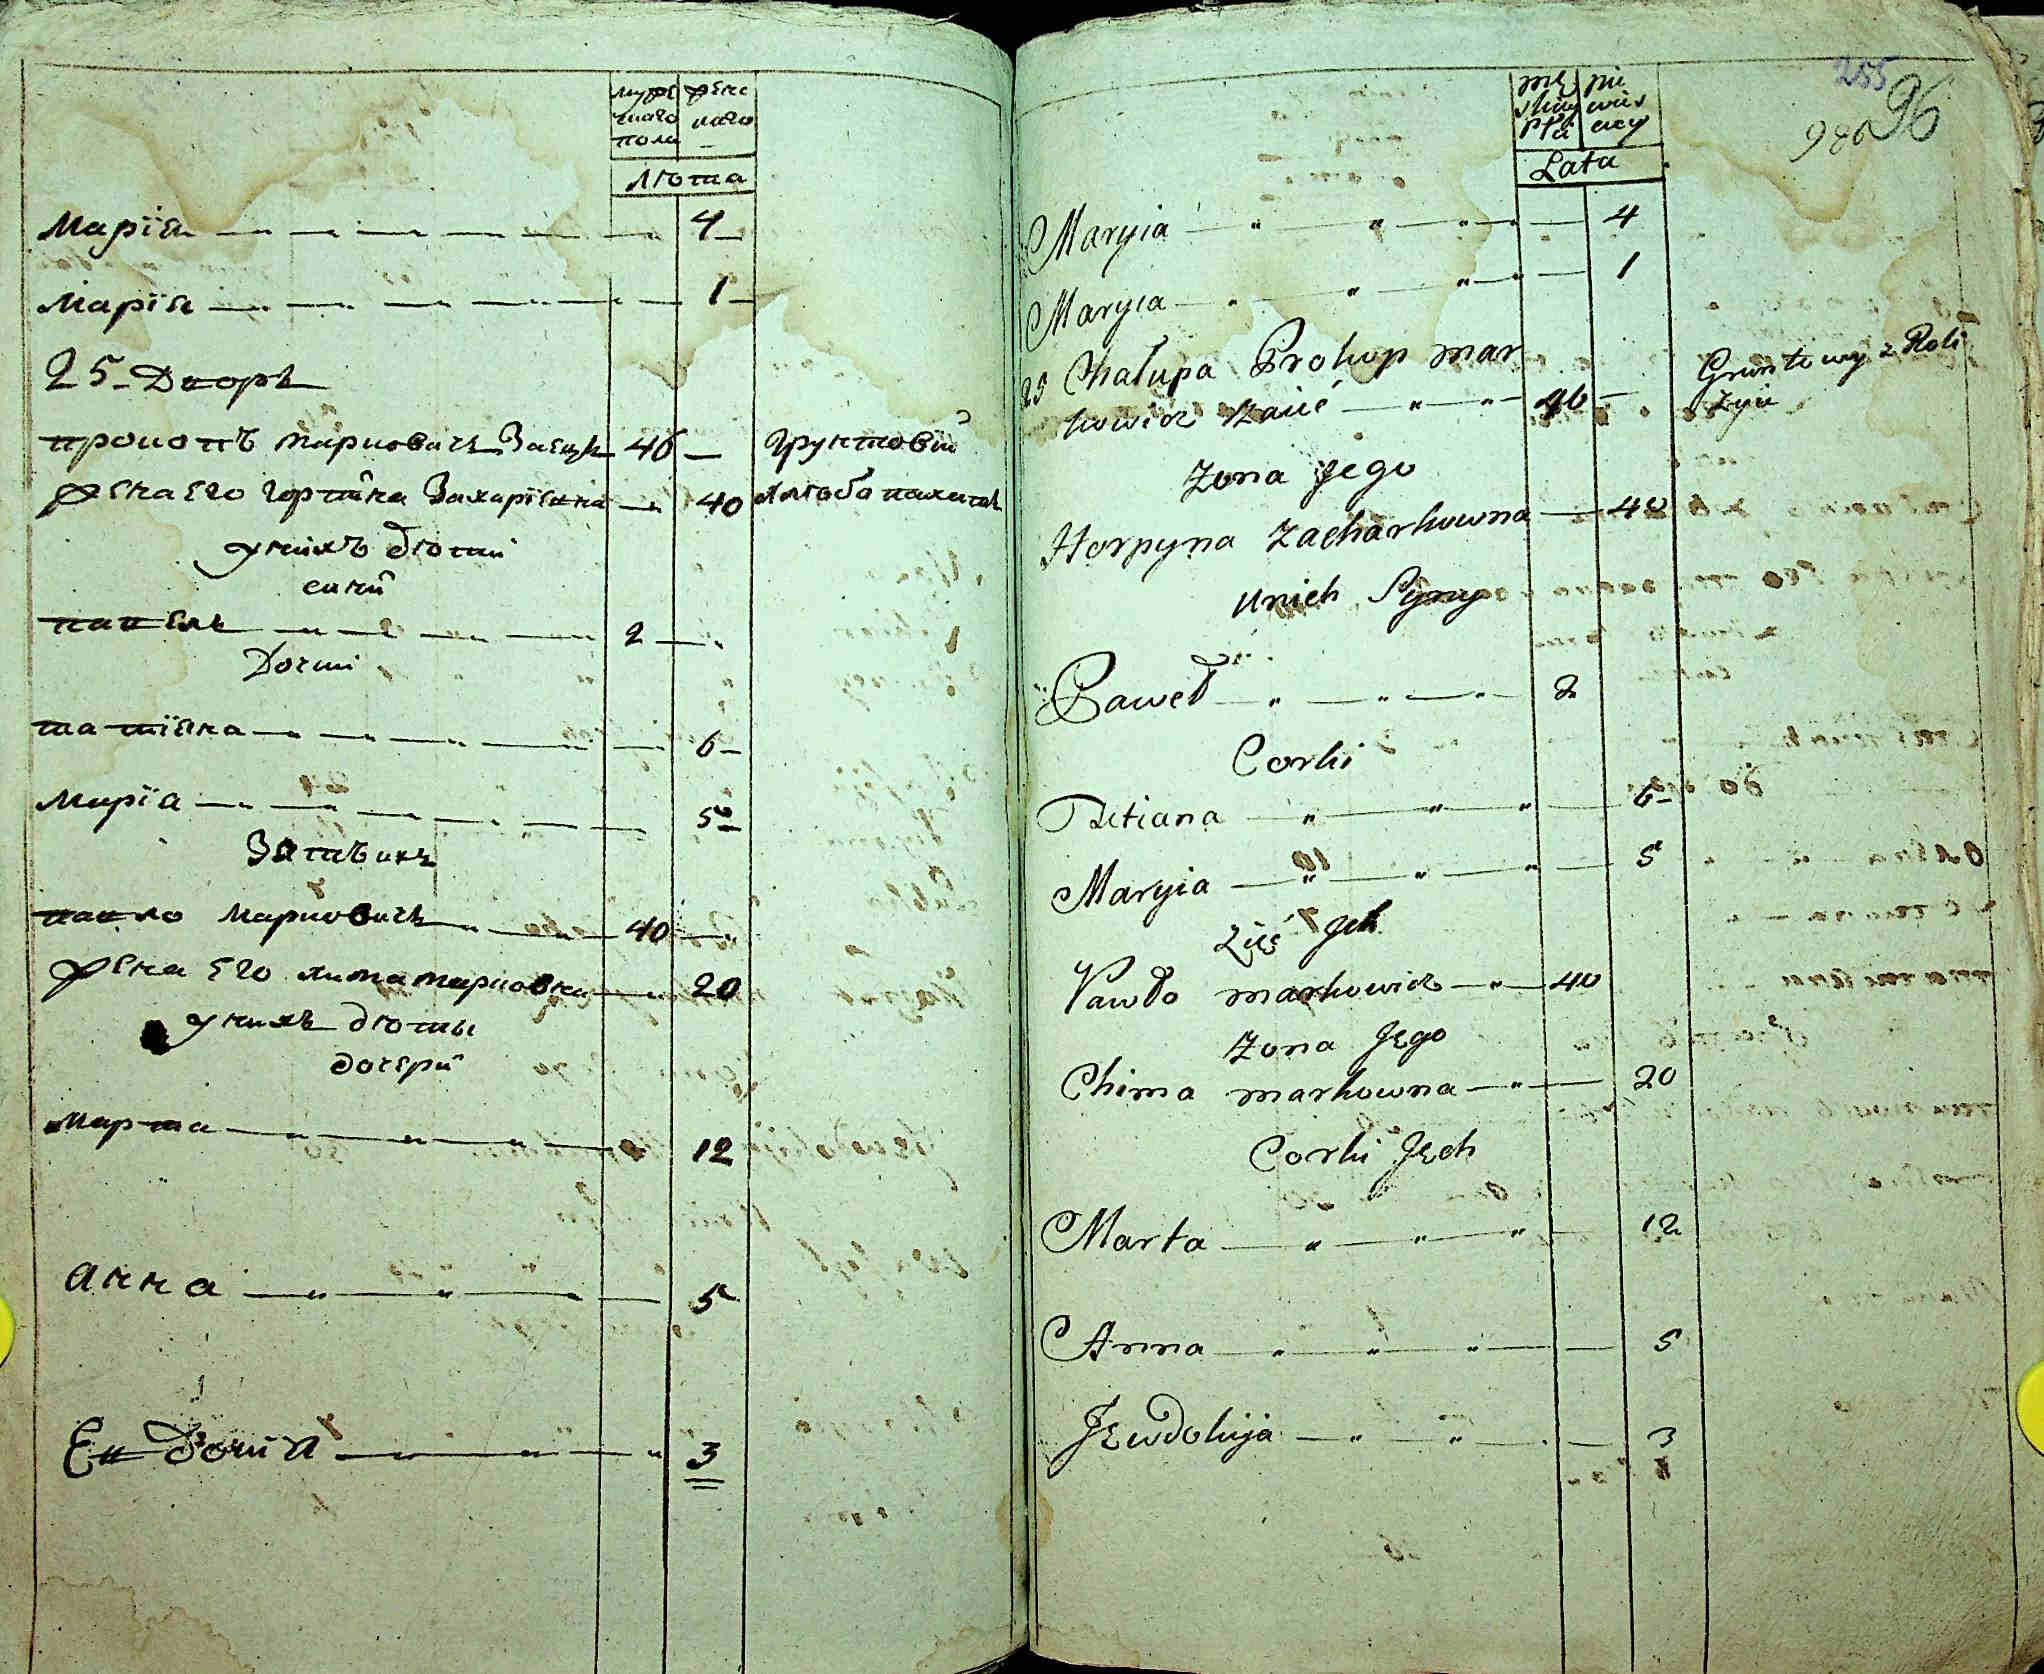 мужеского пола женского
лѣта
Марїя 4
Марїя 1
25 Дворъ
прокопъ марковичъ Заецъ 46 грунтовїй
жена его горпина Захарїевна 40 хлѣбопахатъ
у нихъ дѣти
сини
павелъ 2
Дочки
татїяна 6
Марїа 5
Зять ихъ
павло Марковичъ 40
жена Его хима марковна 20
у нихъ дѣты
дочери
Марта 12
Анна 5
Евдокия 3
255
96
mę skiey płci nie wies ciey
986
Lata
Maryia 4
Maryia 1
25 Chałupa Prokop mar
kowicz Zaiić 46
Gruntowy z Roli
żyie
Zona Jego
Horpyna Zacharkowna 40
Unich Syny
Paweł 2
Corki
Tetiana 6
Maryia 5
Zięć Jch
Pawło markowicz 40
Zona Jego
Chima markowna 20
Corki Jech
Marta 12
Anna 5
Jewdokija 3